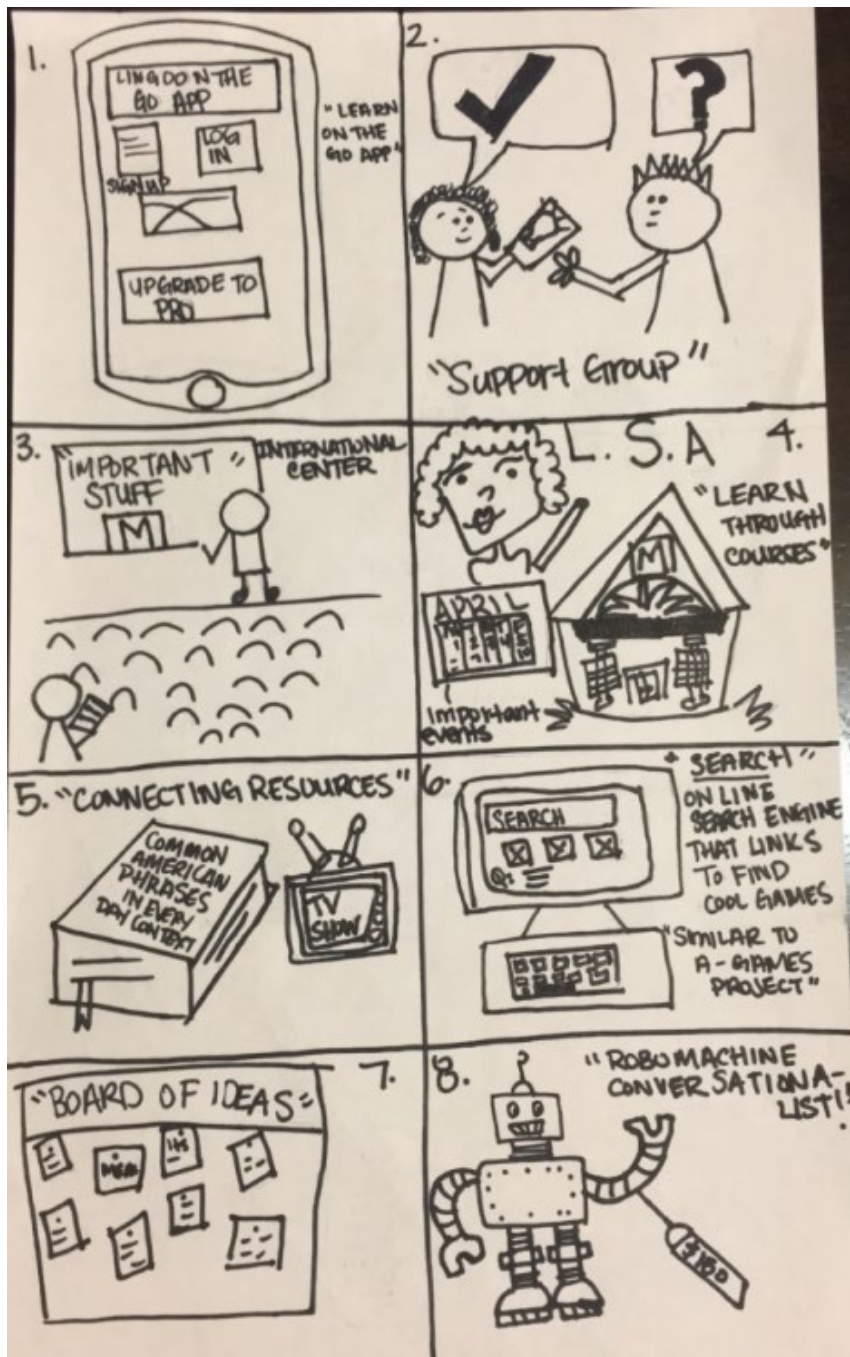 1.
LINGO ON THE
GO APP
LOG
IN
SIGN UP
UPGRADE TO
PRO
"LEARN
ON THE
GO APP"
2.
?
"Support Group"
3.
"IMPORTANT"
STUFF
M
INTERNATIONAL
CENTER
L.S.A
4.
"LEARN
THROUGH
COURSES"
M
APRIL
important
events
5. "CONNECTING RESOURCES"
COMMON
AMERICAN
PHRASES
IN EVERY
DAY CONTEXT
TV
SHOW
6.
SEARCH
Q:
"SEARCH"
ON LINE
SEARCH ENGINE
THAT LINKS
TO FIND
COOL GAMES
"SIMILAR TO
A-GAMES
PROJECT"
7.
"BOARD OF IDEAS"
8.
"ROBOMACHINE
CONVERSATIONA-
LIST!"
$150